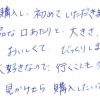 購入し、初めていただきま
品な口あたりと、大きさ、
おいしくて、びっくりしま
大好きなので、行くことも
見かけたら購入したい